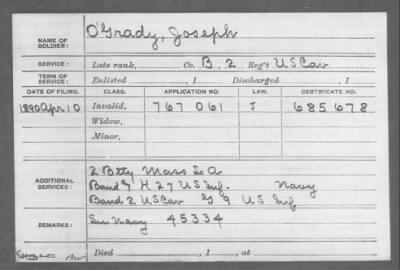 NAME OF SOLDIER: O'Grady, Joseph
SERVICE: Late rank, Co. B, 2 Reg't U S Cav
TERM OF SERVICE: Enlisted , 1 Discharged , 1
DATE OF FILING. CLASS. APPLICATION NO. LAW. CERTIFICATE NO.
1890 Apr 10 Invalid, 767 061 J 685678
Widow,
Minor,
2 Btty Mass L A
ADDITIONAL SERVICES: Band & H 27 U S Inf. Navy
Band 2 U S Cav G 9 U S Inf
REMARKS: See Navy 45334
Died , 1 , at